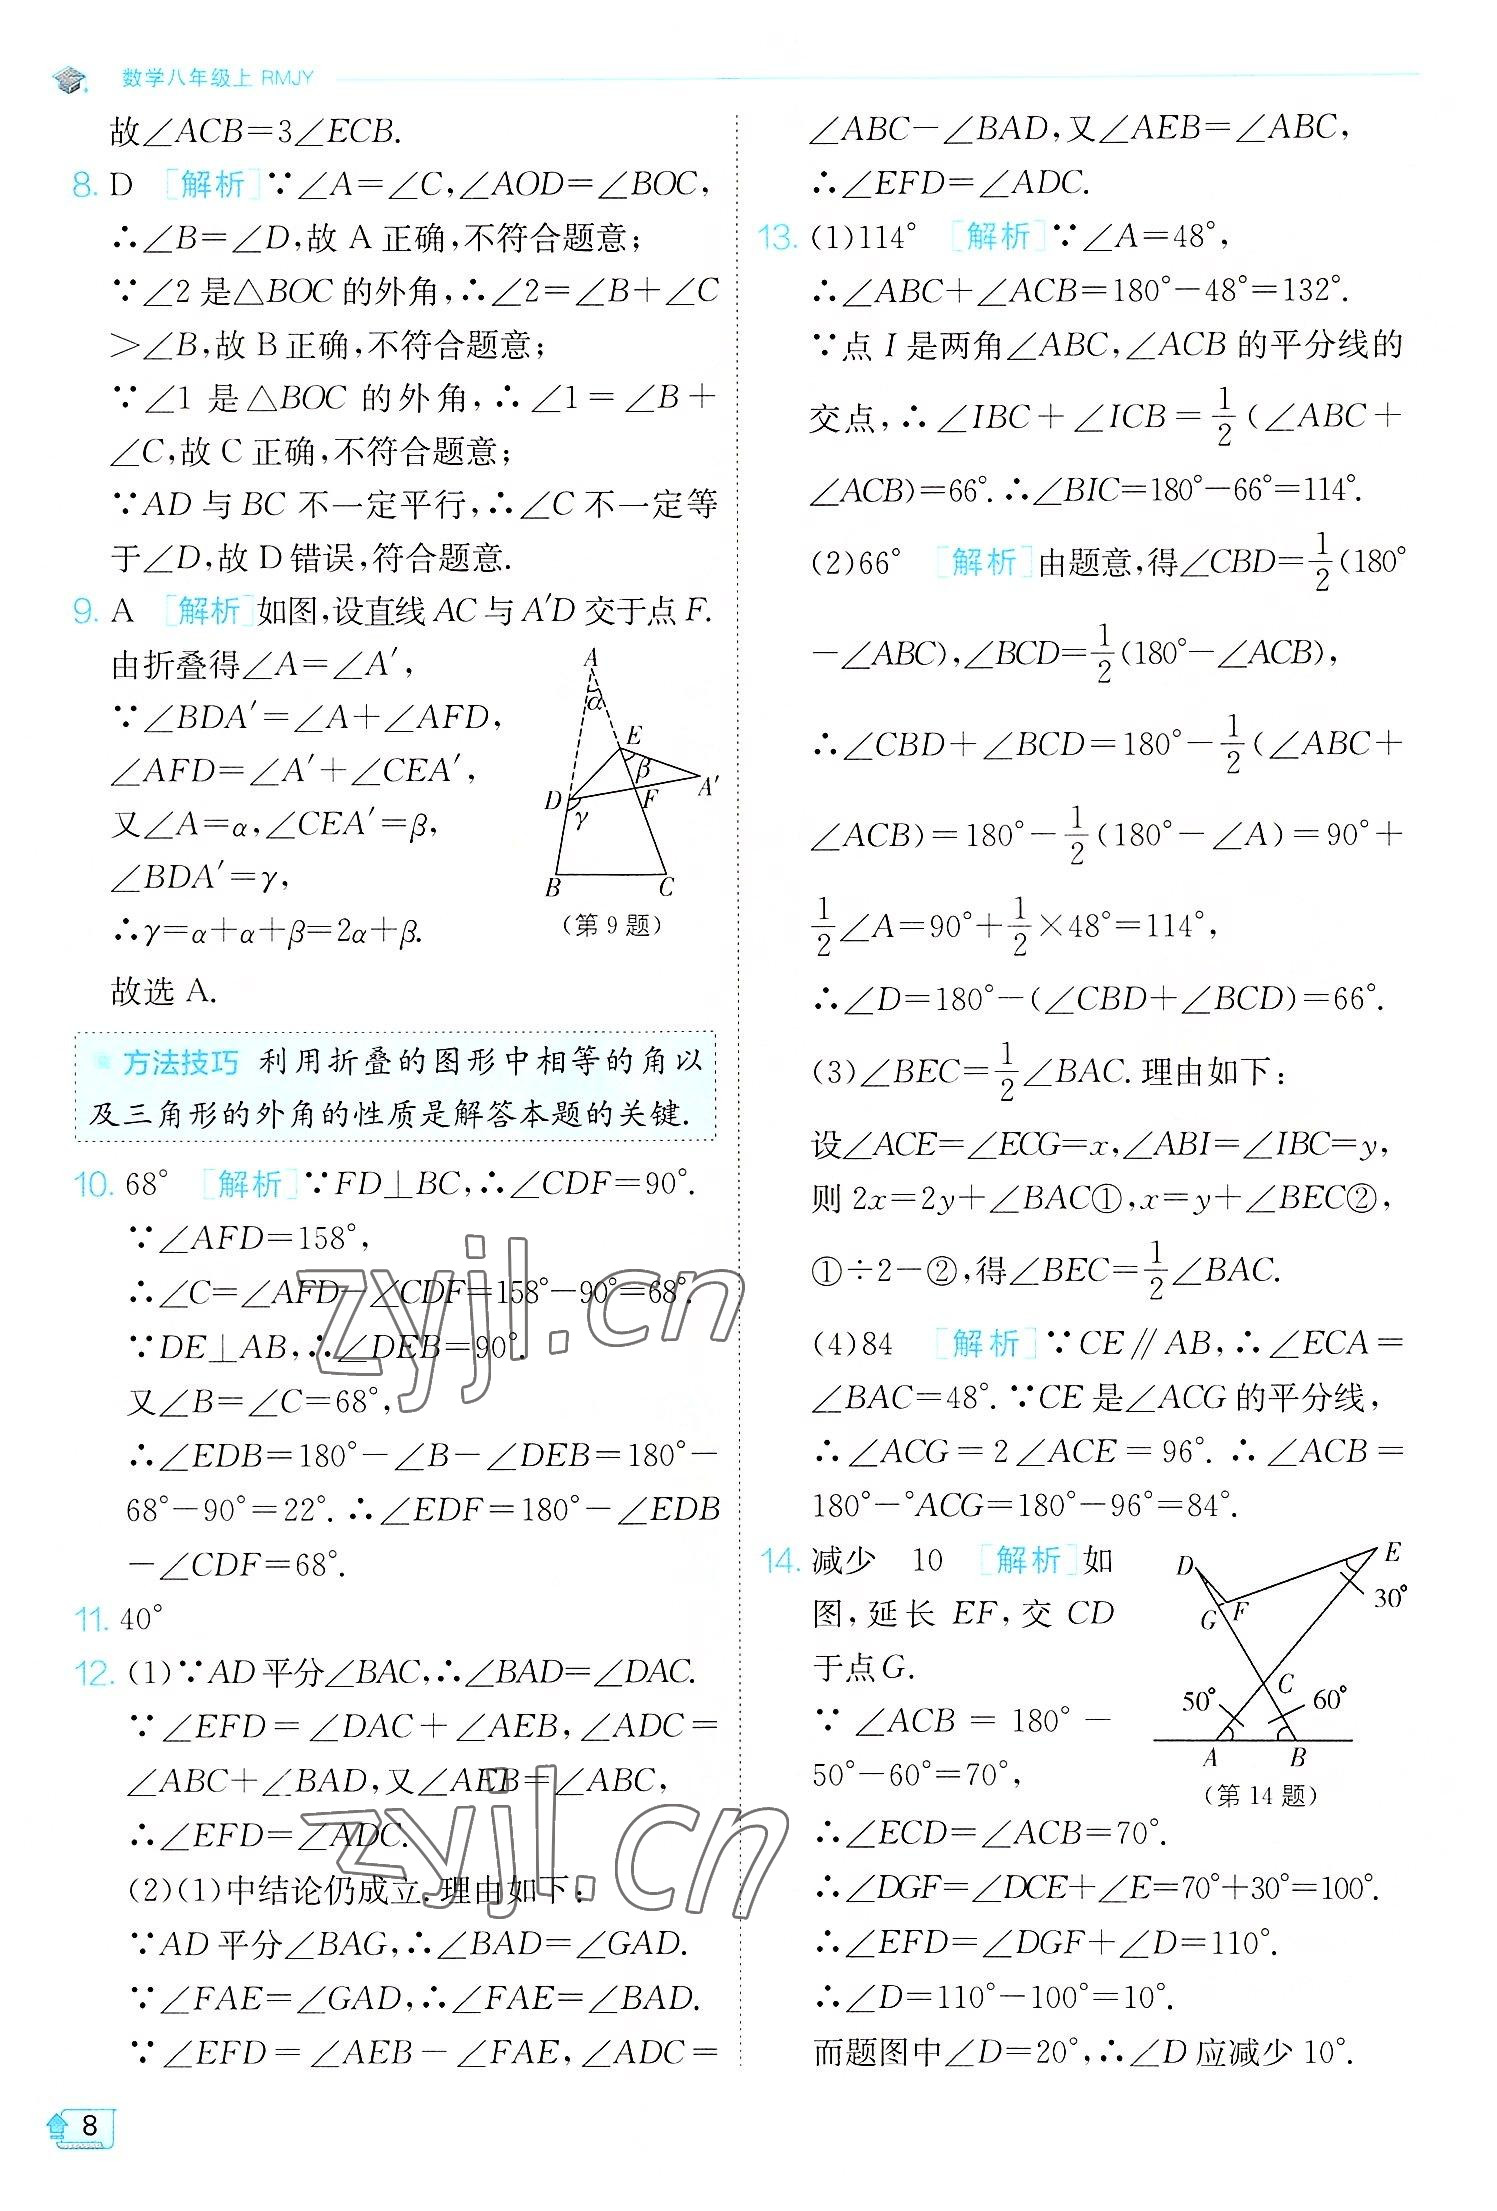 数学八年级上 RMJY
故∠ACB=3∠ECB.
8. D [解析]∵∠A=∠C,∠AOD=∠BOC,
∴∠B=∠D,故 A 正确,不符合题意;
∵∠2 是△BOC 的外角,∴∠2=∠B+∠C
>∠B,故 B 正确,不符合题意;
∵∠1 是△BOC 的外角,∴∠1=∠B+
∠C,故 C 正确,不符合题意;
∵AD 与 BC 不一定平行,∴∠C 不一定等
于∠D,故 D 错误,符合题意.
9. A [解析]如图,设直线 AC 与 A′D 交于点 F.
由折叠得∠A=∠A′,
∵∠BDA′=∠A+∠AFD,
∠AFD=∠A′+∠CEA′,
又∠A=α,∠CEA′=β,
∠BDA′=γ,
∴γ=α+α+β=2α+β.
故选 A.
A
α
E
β
A′
D
F
γ
B
C
(第 9 题)
方法技巧 利用折叠的图形中相等的角以
及三角形的外角的性质是解答本题的关键.
10. 68° [解析]∵FD⊥BC,∴∠CDF=90°.
∵∠AFD=158°,
∴∠C=∠AFD-∠CDF=158°-90°=68°.
∵DE⊥AB,∴∠DEB=90°.
又∠B=∠C=68°,
∴∠EDB=180°-∠B-∠DEB=180°-
68°-90°=22°.∴∠EDF=180°-∠EDB
-∠CDF=68°.
11. 40°
12. (1)∵AD 平分∠BAC,∴∠BAD=∠DAC.
∵∠EFD=∠DAC+∠AEB,∠ADC=
∠ABC+∠BAD,又∠AEB=∠ABC,
∴∠EFD=∠ADC.
(2)(1)中结论仍成立.理由如下:
∵AD 平分∠BAG,∴∠BAD=∠GAD.
∵∠FAE=∠GAD,∴∠FAE=∠BAD.
∵∠EFD=∠AEB-∠FAE,∠ADC=
∠ABC-∠BAD,又∠AEB=∠ABC,
∴∠EFD=∠ADC.
13. (1)114° [解析]∵∠A=48°,
∴∠ABC+∠ACB=180°-48°=132°.
∵点 I 是两角∠ABC,∠ACB 的平分线的
交点,∴∠IBC+∠ICB=1/2(∠ABC+
∠ACB)=66°.∴∠BIC=180°-66°=114°.
(2)66° [解析]由题意,得∠CBD=1/2(180°
-∠ABC),∠BCD=1/2(180°-∠ACB),
∴∠CBD+∠BCD=180°-1/2(∠ABC+
∠ACB)=180°-1/2(180°-∠A)=90°+
1/2∠A=90°+1/2×48°=114°,
∴∠D=180°-(∠CBD+∠BCD)=66°.
(3)∠BEC=1/2∠BAC.理由如下:
设∠ACE=∠ECG=x,∠ABI=∠IBC=y,
则 2x=2y+∠BAC①,x=y+∠BEC②,
①÷2-②,得∠BEC=1/2∠BAC.
(4)84 [解析]∵CE∥AB,∴∠ECA=
∠BAC=48°.∵CE 是∠ACG 的平分线,
∴∠ACG=2∠ACE=96°.∴∠ACB=
180°-°ACG=180°-96°=84°.
14. 减少 10 [解析]如
图,延长 EF,交 CD
于点G.
∵∠ACB=180°-
50°-60°=70°,
∴∠ECD=∠ACB=70°.
∴∠DGF=∠DCE+∠E=70°+30°=100°.
∴∠EFD=∠DGF+∠D=110°.
∴∠D=110°-100°=10°.
而题图中∠D=20°,∴∠D 应减少 10°.
D
E
30°
G
F
C
50°
60°
A
B
(第 14 题)
zyjl.cn
zyjl.cn
8